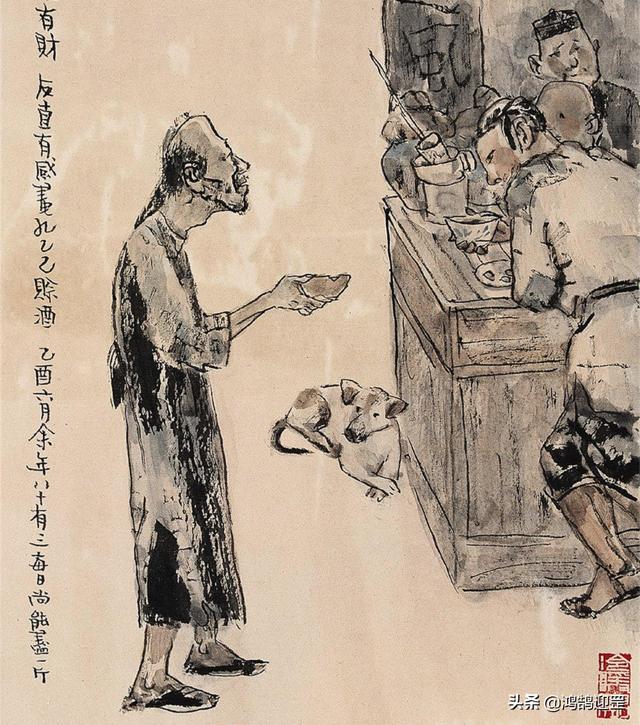 有財 反直有感畫孔乙己賒酒 乙酉六月余年八十有三每日尚能盡一斤
風
头条 @鸿鹄迎罡